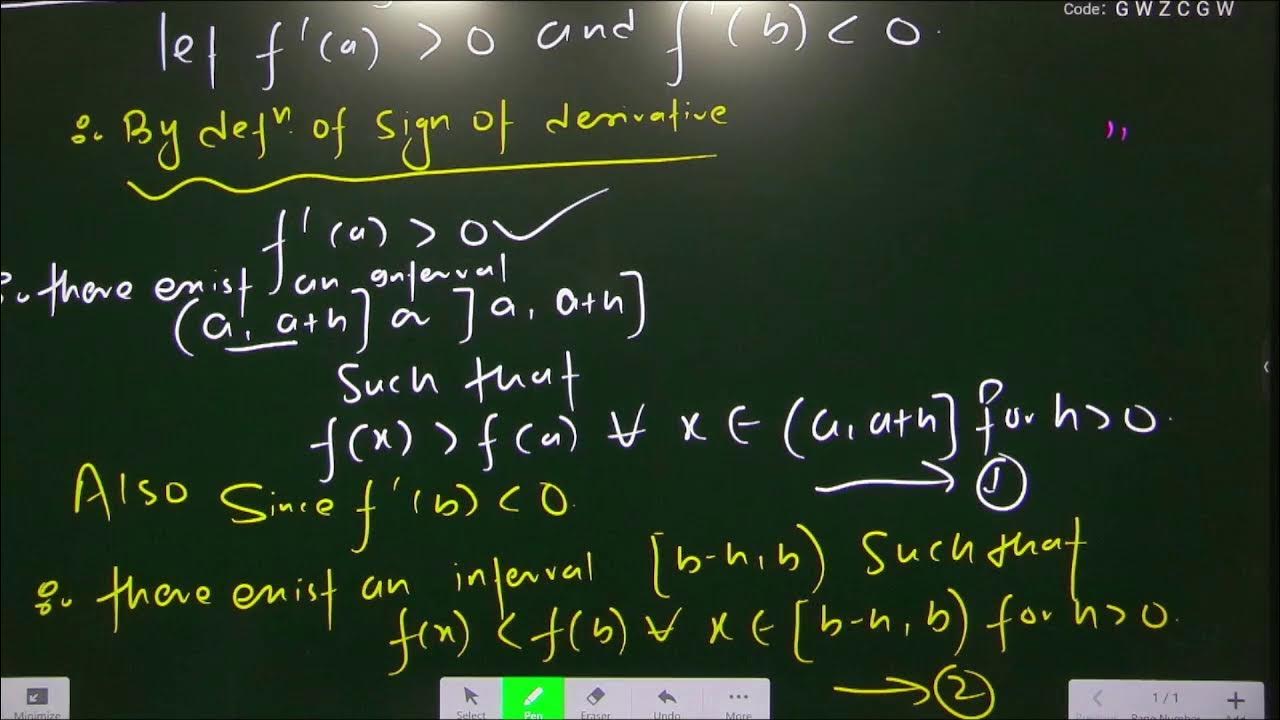 Code: G W Z C G W
let f'(a) > 0 and f'(b) < 0.
∴ By defⁿ. of sign of derivative
f'(a) > 0 ✓
∴ there exist an interval
(a, a+h] or ]a, a+h]
Such that
f(x) > f(a) ∀ x ∈ (a, a+h] for h>0.
→ ①
Also Since f'(b) < 0.
∴ there exist an interval [b-h, b) Such that
f(x) < f(b) ∀ x ∈ [b-h, b) for h>0.
→ ②
Minimize Select Pen Eraser Undo More 1/1 Page Number